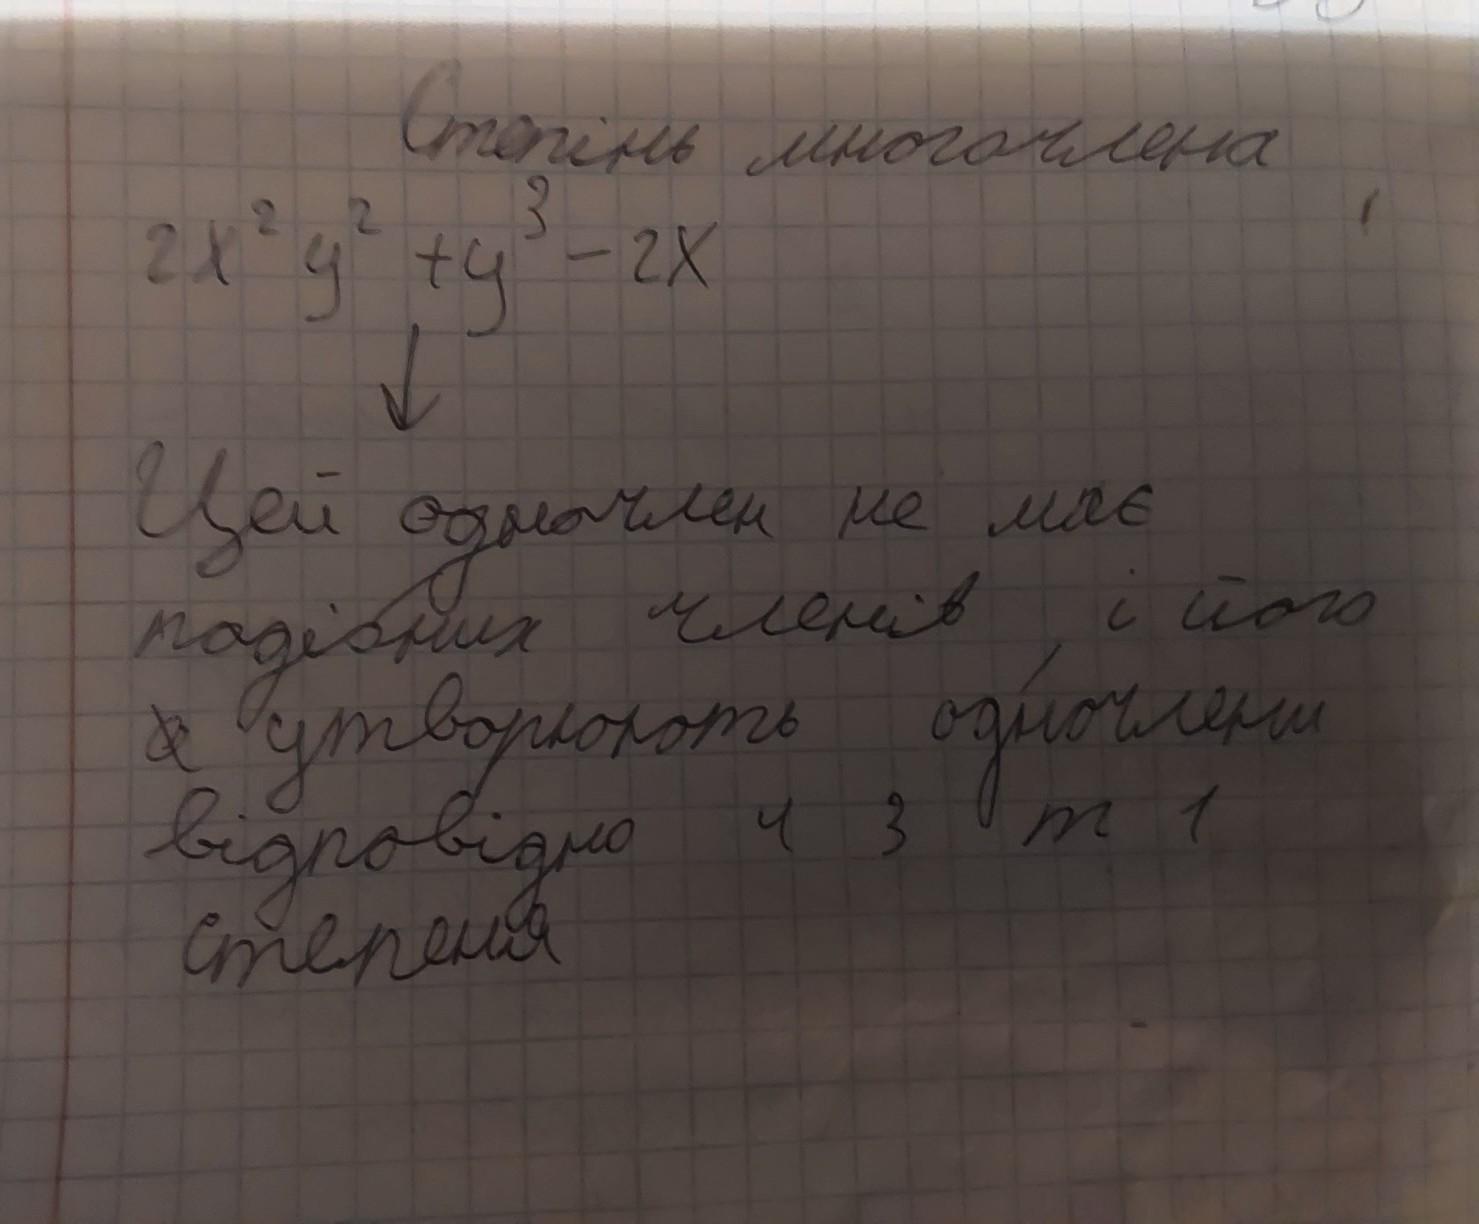 Степінь многочлена
2x² y² + y³ - 2x
Цей одночлен не має
подібних членів, і його
утворюють одночлени
відповідно 4 3 т 1
степеня